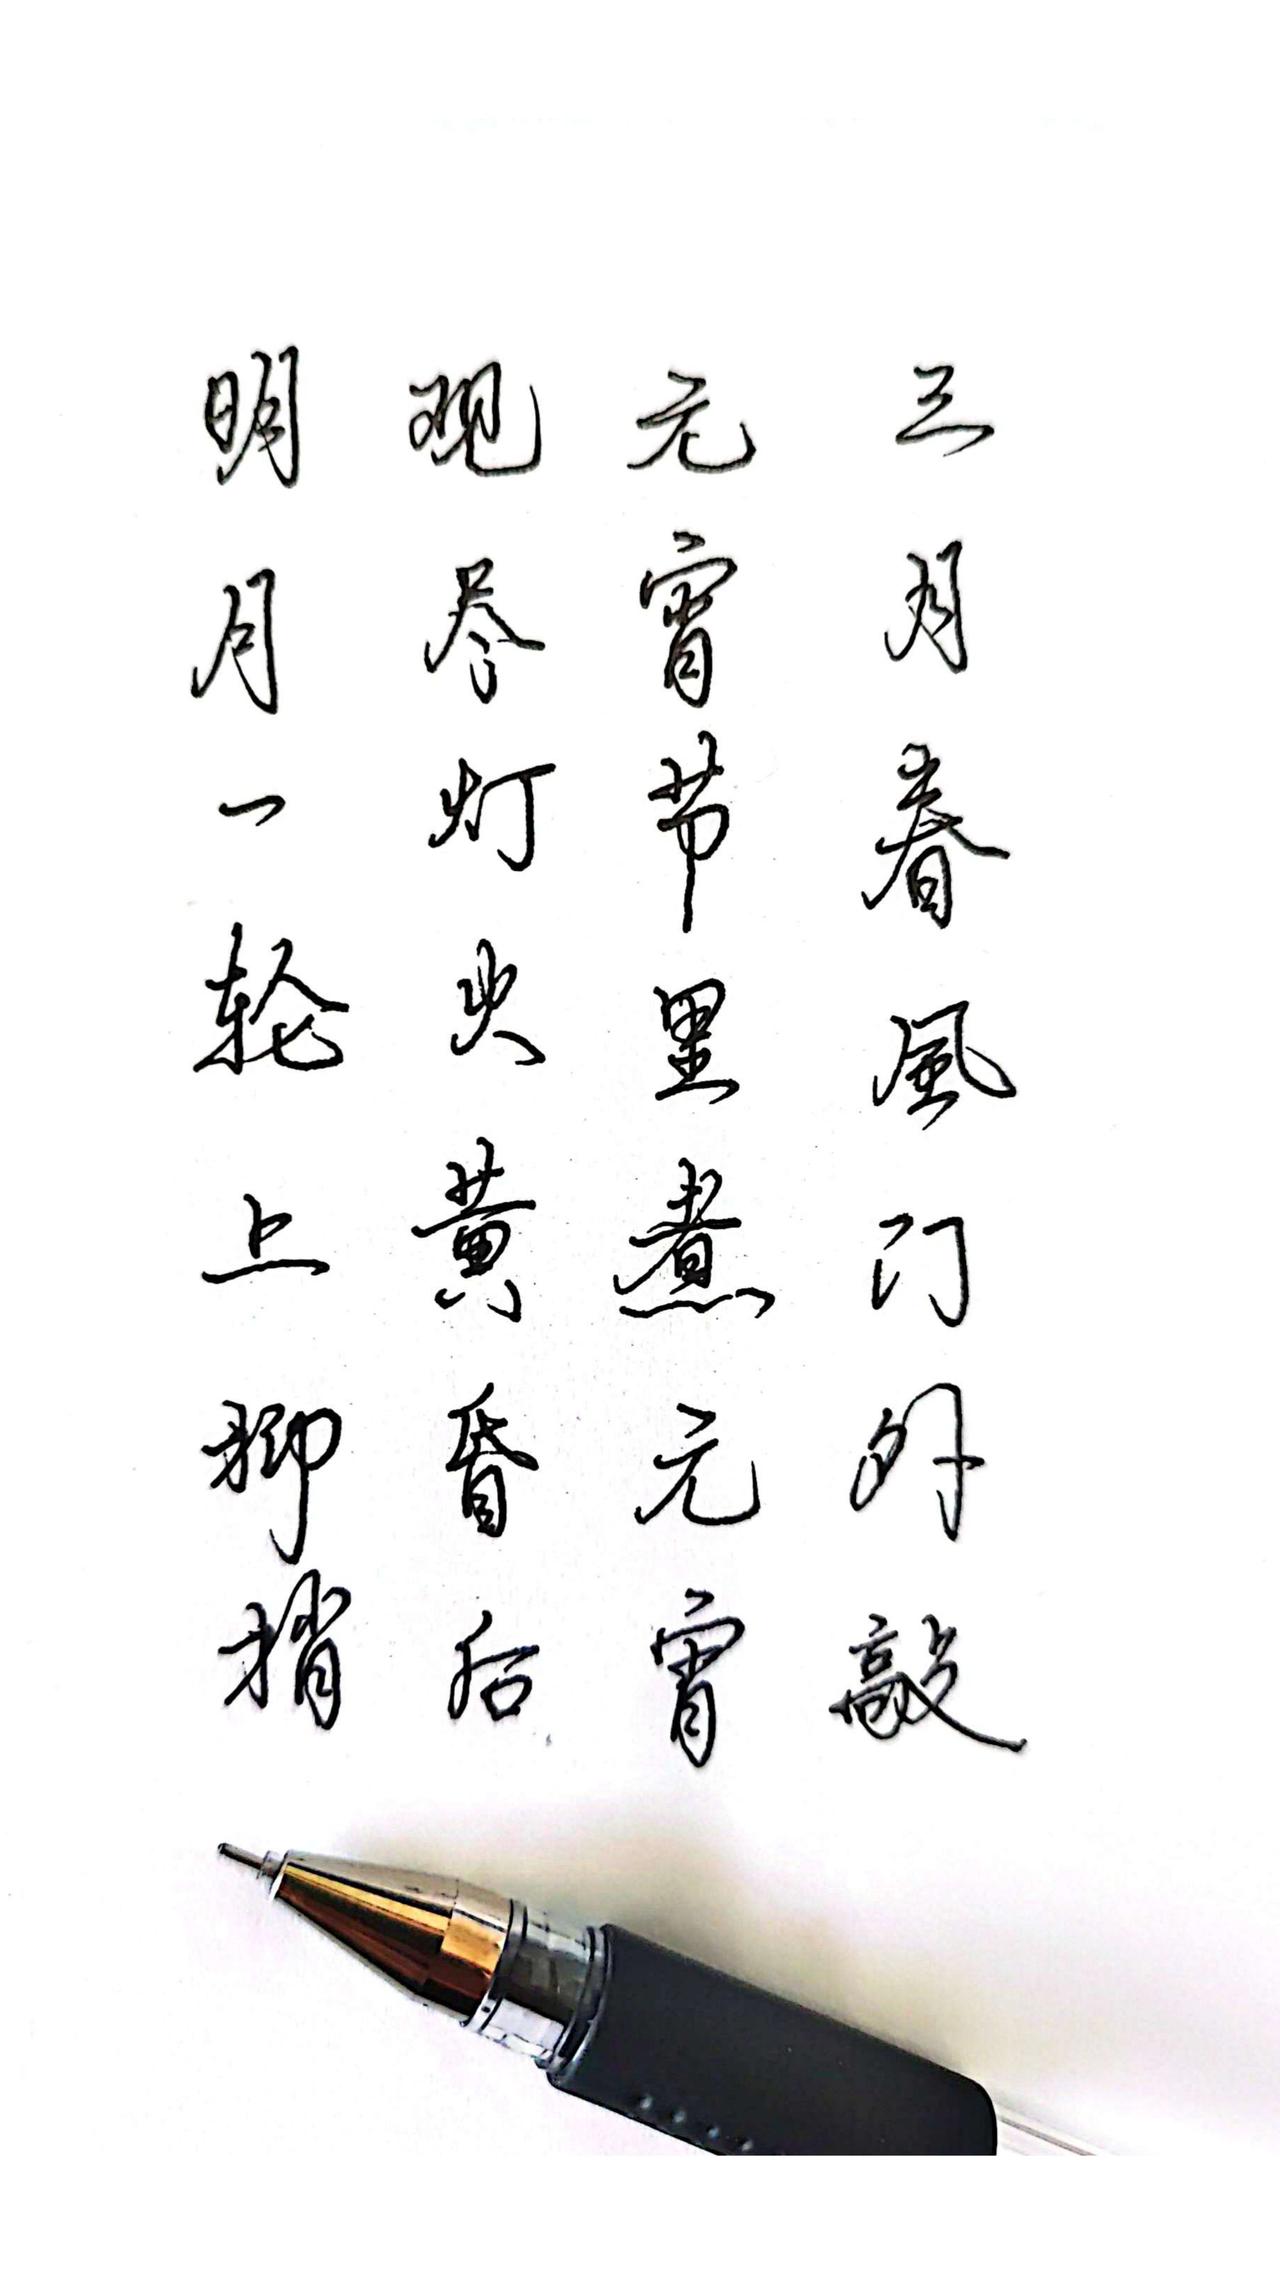 三月春風门外敲
元宵节里煮元宵
观尽灯火黄昏后
明月一轮上柳梢